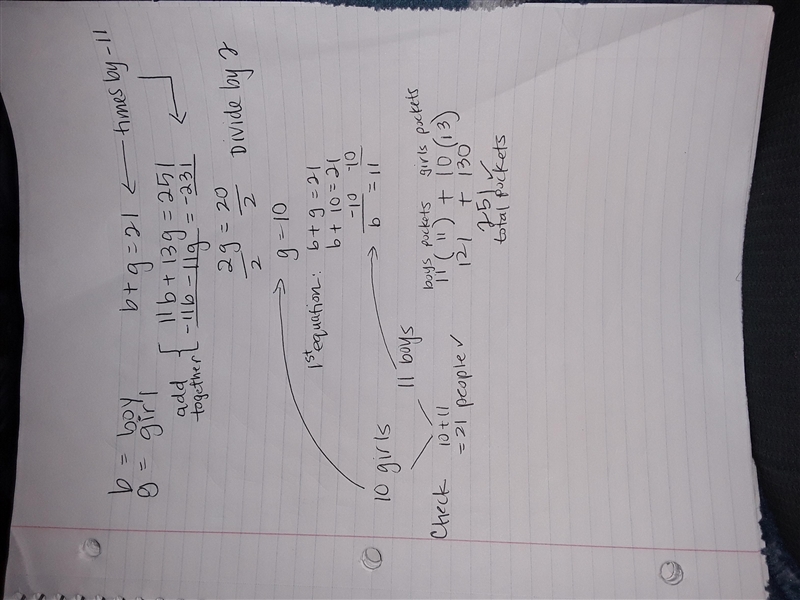 b = boy
g = girl
b + g = 21 ← times by -11
add together { 11b + 13g = 251
-11b - 11g = -231
2g = 20 Divide by 2
2 2
g = 10
1st equation: b + g = 21
b + 10 = 21
-10 -10
b = 11
10 girls
11 boys
Check
10 + 11
= 21 people ✓
boys pockets girls pockets
11 ( 11 ) + 10 (13)
121 + 130
251 ✓
total pockets